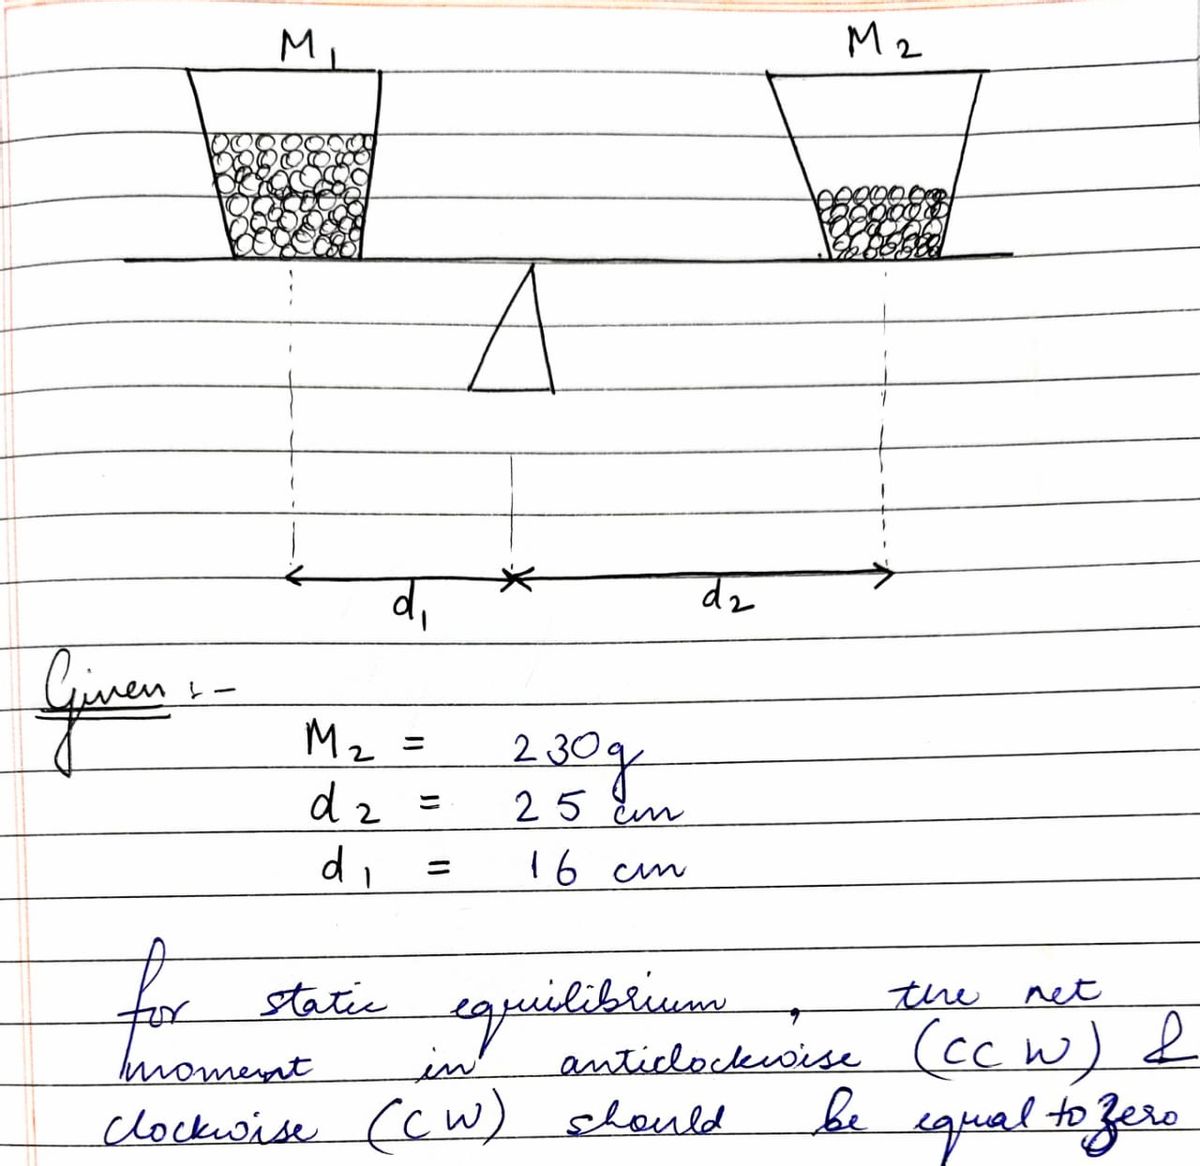 M1 M2
d1 d2
Given :-
M2 = 230g
d2 = 25 cm
d1 = 16 cm
for static equilibrium, the net
moment in anticlockwise (CCW) &
clockwise (CW) should be equal to zero